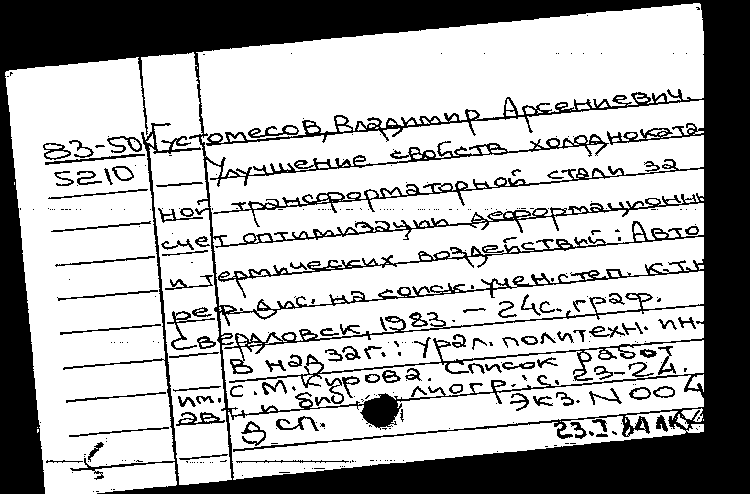 83-50К Густомесов, Владимир Арсениевич.
5210 Улучшение свойств холодноката-
ной трансформаторной стали за
счет оптимизации деформационны
и термических воздействий: Авто
реф. дис. на соиск. учен. степ. к.т.н
Свердловск, 1983. — 24с., граф.
В надзаг.: Урал. политехн. ин-
им. С.М. Кирова. Список работ
авт. и биб лиогр.: с. 23-24.
Д сп. Экз. N 004
23.I.84